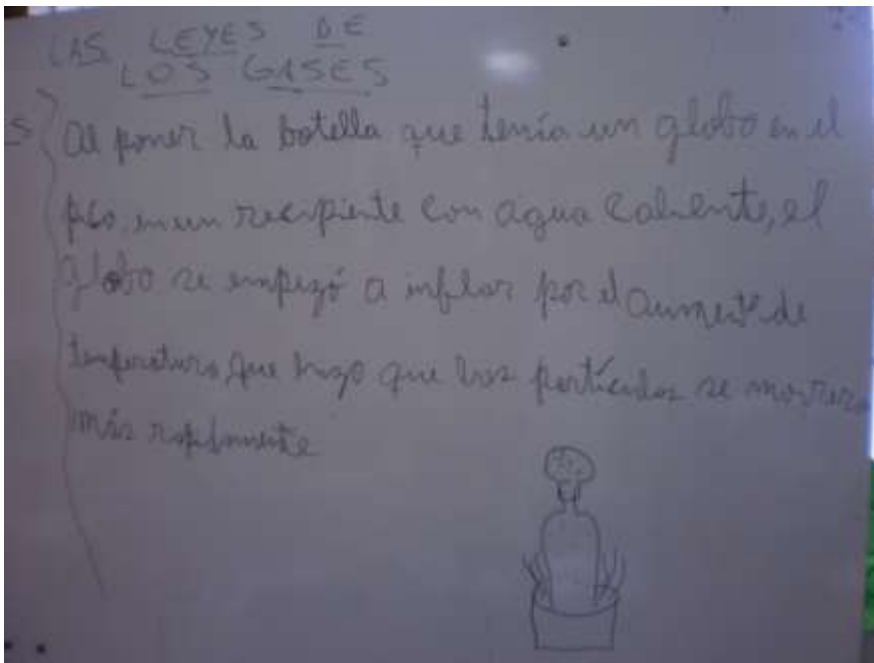 LAS LEYES DE
LOS GASES
Al poner la botella que tenía un globo en el
pico, en un recipiente con agua caliente, el
globo se empezó a inflar por el aumento de
temperatura, que hizo que las partículas se movieran
más rapidamente